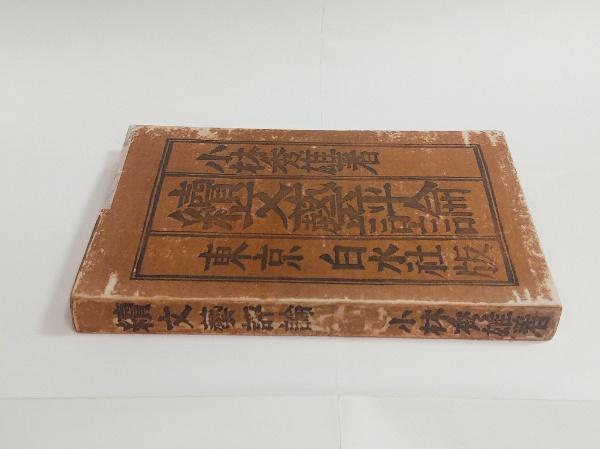 小林秀雄著
續文藝評論
東京 白水社版
續文藝評論 小林秀雄著